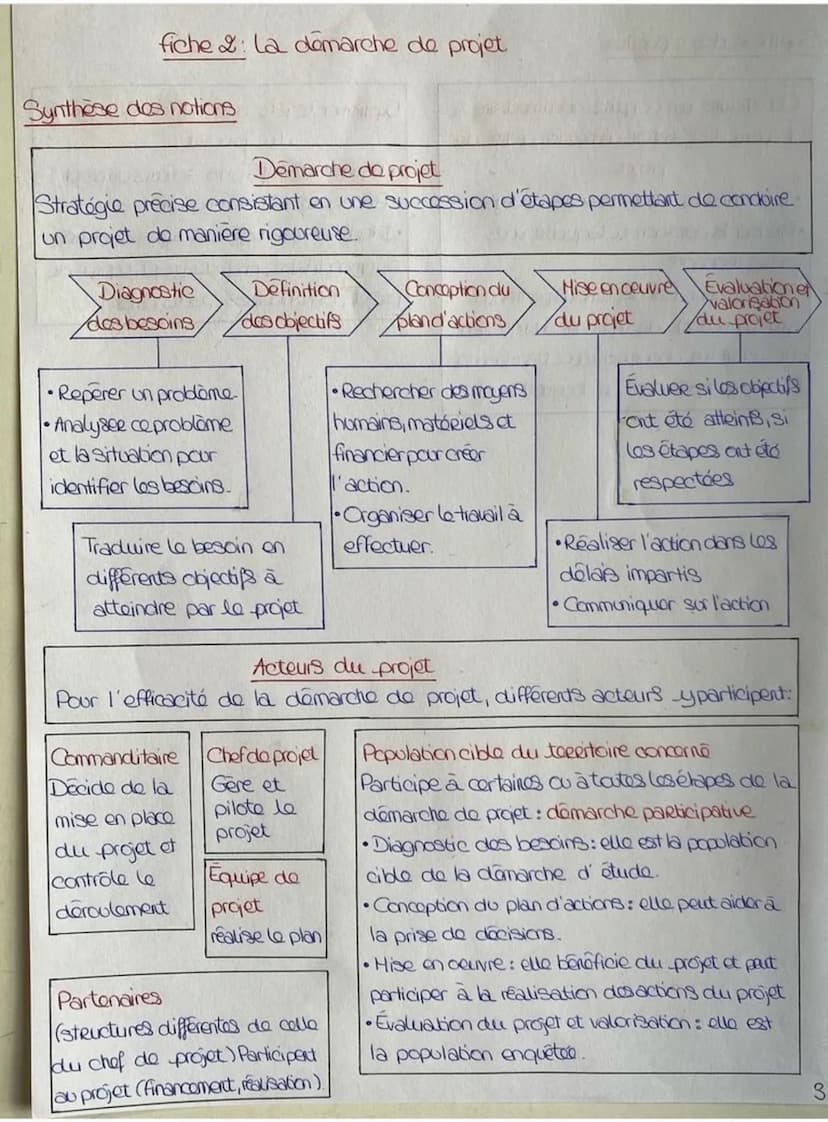 fiche 2 : La démarche de projet
Synthèse des notions
Démarche de projet
Stratégie précise consistant en une succession d'étapes permettant de conduire
un projet de manière rigoureuse.
Diagnostic
des besoins
Définition
des objectifs
Conception du
plan d'actions
Mise en oeuvre
du projet
Évaluation et
valorisation
du projet
• Repérer un problème.
• Analyser ce problème
et la situation pour
identifier les besoins.
Traduire le besoin en
différents objectifs à
atteindre par le projet
• Rechercher des moyens
humains, matériels et
financier pour créer
l'action.
• Organiser le travail à
effectuer.
• Réaliser l'action dans les
délais impartis
• Communiquer sur l'action
Évaluer si les objectifs
ont été atteints, si
les étapes ont été
respectées
Acteurs du projet
Pour l'efficacité de la démarche de projet, différents acteurs y participent :
Commanditaire
Décide de la
mise en place
du projet et
contrôle le
déroulement
Chef de projet
Gère et
pilote le
projet
Équipe de
projet
réalise le plan
Partenaires
(structures différentes de celle
du chef de projet) Participent
au projet (financement, réalisation)
Population cible du territoire concerné
Participe à certaines ou à toutes les étapes de la
démarche de projet : démarche participative
• Diagnostic des besoins : elle est la population
cible de la démarche d'étude.
• Conception du plan d'actions : elle peut aider à
la prise de décisions.
• Mise en oeuvre : elle bénéficie du projet et peut
participer à la réalisation des actions du projet
• Évaluation du projet et valorisation : elle est
la population enquêtée.
3